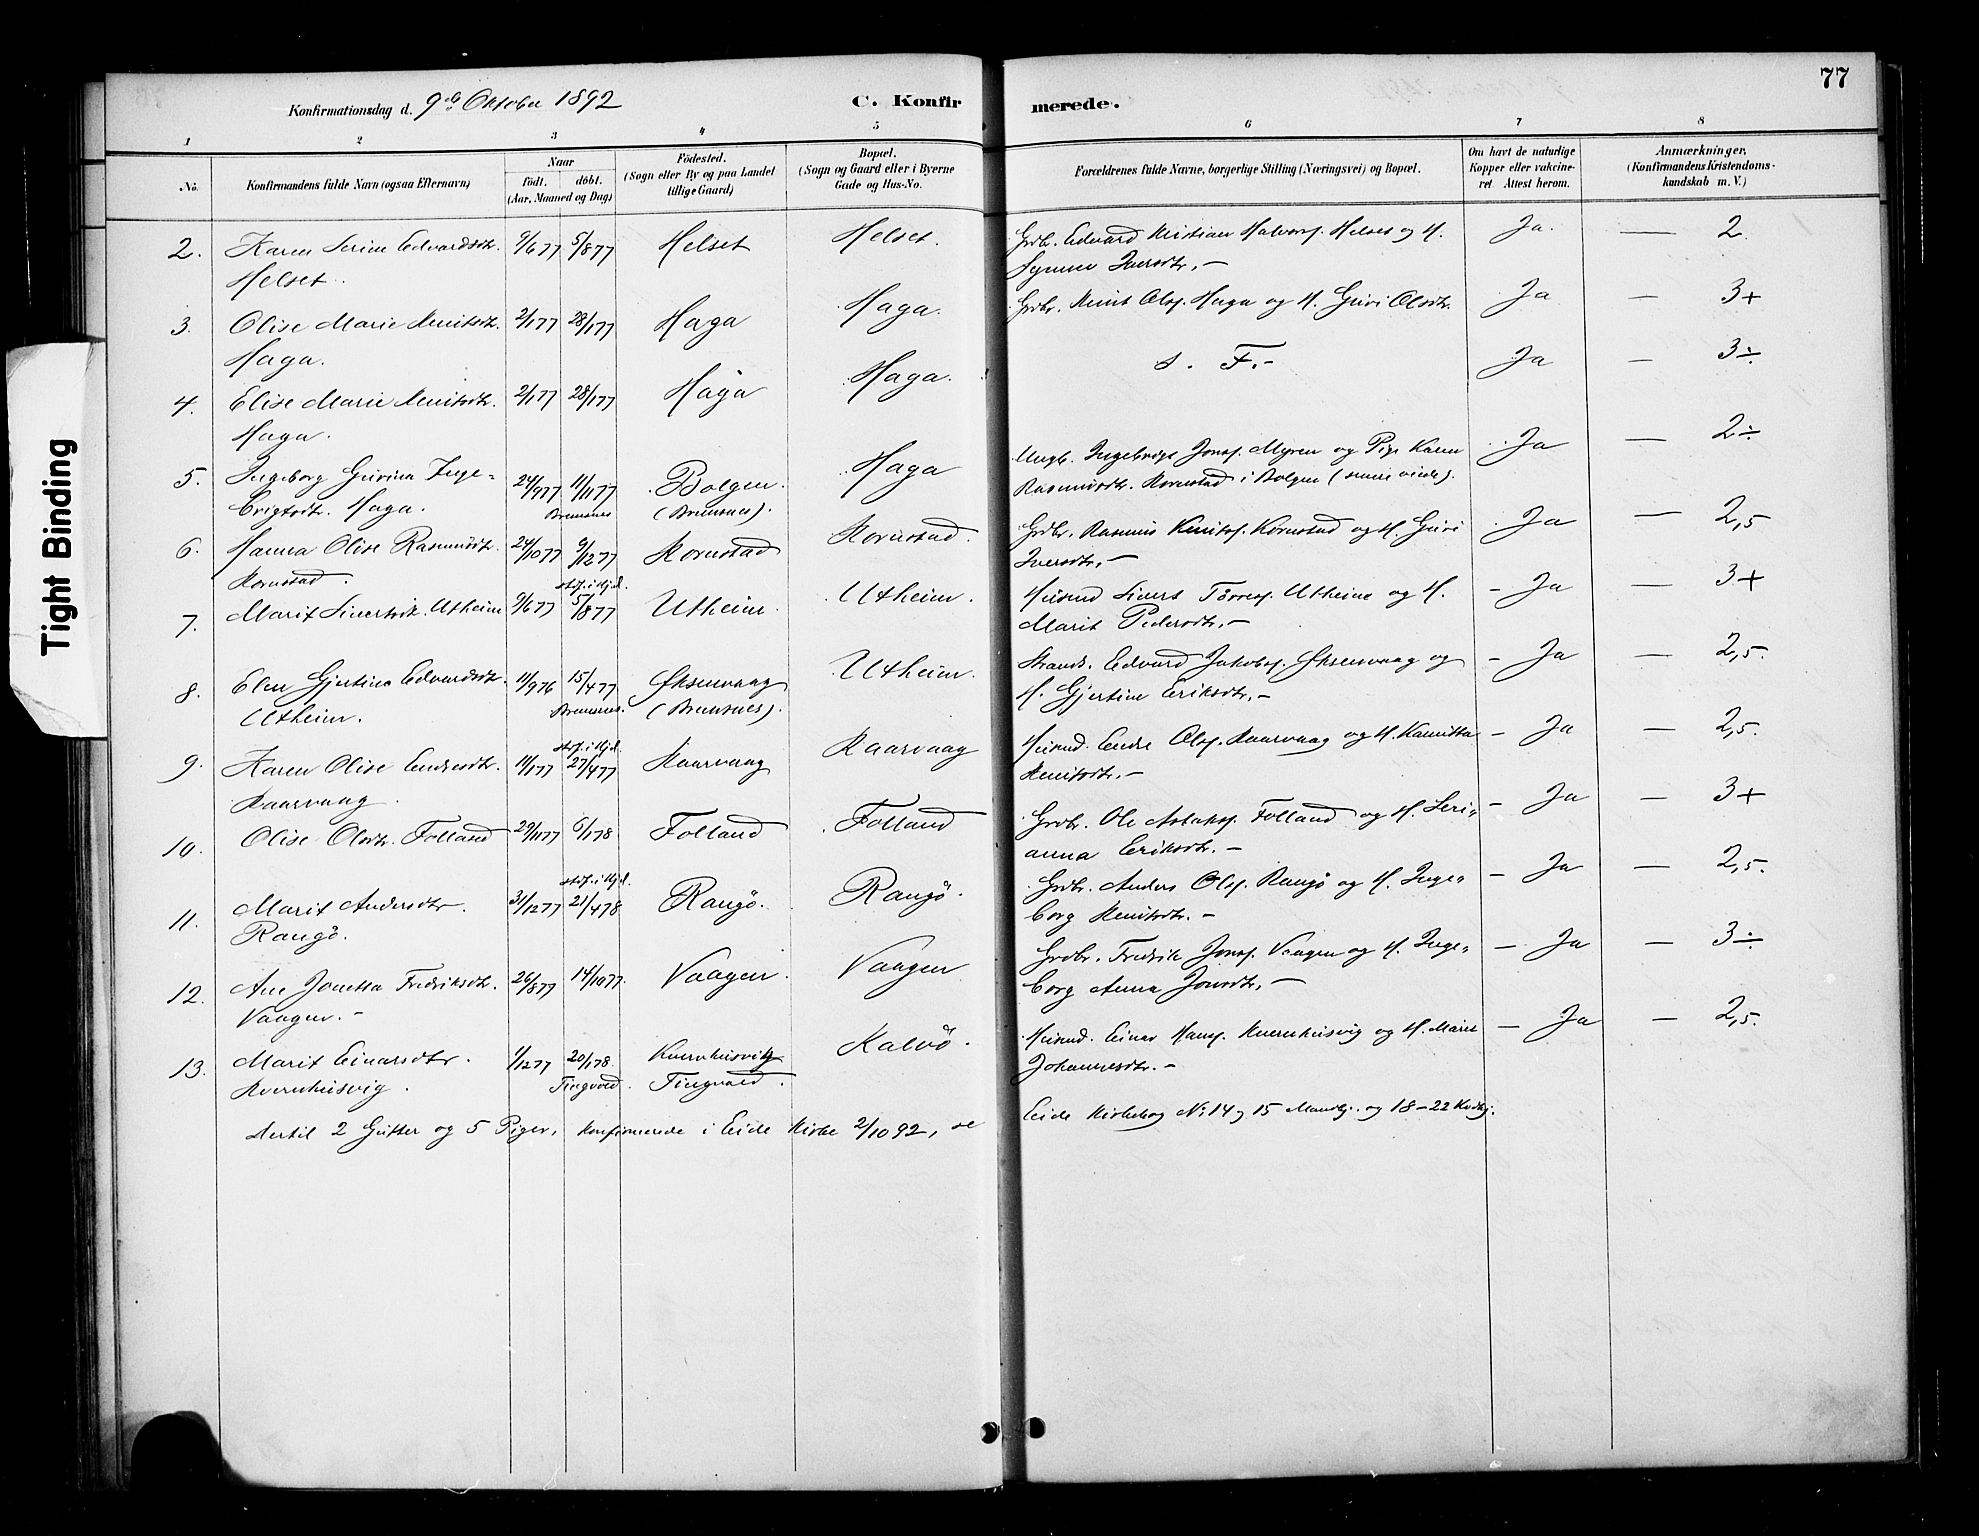 77
Konfirmationsdag d. 9de Oktober 1892
C. Konfirmerede.
1 2 3 4 5 6 7 8
No.
Konfirmandens fulde Navn (ogsaa Efternavn)
Naar
födt. döbt.
(Aar, Maaned og Dag)
Födested.
(Sogn eller By og paa Landet
tillige Gaard)
Bopæl.
(Sogn og Gaard eller i Byerne
Gade og Hus-No.
Forældrenes fulde Navne, borgerlige Stilling (Næringsvei) og Bopæl.
Om havt de naturlige
Kopper eller vakcine-
ret. Attest herom.
Anmærkninger,
(Konfirmandens Kristendoms-
kundskab m. V.)
2. Karen Serine Edvardsdtr. 9/6 77 5/8 77 Helset Helset. Grdbr. Edvard Kristian Halvors. Helset og H. Ja. — 2.
Helset. Synnev Iversdtr. —
3. Olise Marie Knutsdtr. 2/1 77 28/1 77 Haga Haga. Grdbr. Knut Ols. Haga og H. Guri Olsdtr. Ja — 3+
Haga.
4. Elise Marie Knutsdtr. 2/1 77 28/1 77 Haga Haga. s. F. - Ja — 3÷
Haga.
5. Ingeborg Gurina Inge= 24/9 77 11/11 77 Bolgen. Haga Ungk. Ingebrigt Jons. Myren og Pige Karen Ja — 2÷
brigtsdtr. Haga. Bremsnes (Bremsnes). Rasmusdtr. Kornstad i Bolgen
6. Hanna Olise Rasmusdtr. 24/10 77 9/12 77 Kornstad Kornstad. Grdbr. Rasmus Knuts. Kornstad og H. Guri Ja — 2,5
Kornstad. Iversdtr. —
7. Marit Sivertsdt. Utheim 9/6 77 stf. i Hjd. 5/8 77 Utheim. Utheim. Husmd Sivert Tørres. Utheim og H. - Ja — 3+
Marit Pedersdtr. —
8. Elen Gjertine Edvardsdtr. 11/9 76 15/4 77 Øksenvaag Utheim. Strands. Edvard Jakobs. Øksenvaag og - Ja — 2,5.
Utheim. Bremsnes. (Bremsnes). H. Gjertine Eriksdtr. —
9. Karen Olise Endresdtr. 11/1 77 stf. i Hjd. 27/4 77 Kaarvaag Kaarvaag Husmd. Endre Ols. Kaarvaag og H. Kanutta - Ja — 2,5.
Kaarvaag. Knutsdtr. —
10. Olise Olsdtr. Folland 29/11 77 6/1 78 Folland Folland Grdbr. Ole Aslaks. Folland og H. Seri= - Ja — 3+
anna Eriksdtr. —
11. Marit Andersdtr. 31/12 77 stf. i Hjd. 21/4 78 Rangö. Rangö. Grdbr. Anders Ols. Rangö og H. Inge= - Ja — 2,5.
Rangö. borg Knutsdtr. —
12. Ane Jonetta Fredriksdtr. 26/8 77 14/10 77. Vaagen. Vaagen Grdbr. Fredrik Jons. Vaagen og H. Inge= — Ja — 3÷
Vaagen. — borg Anna Jonsdtr. —
13. Marit Einarsdtr. 1/12 77 20/1 78. Kvernhusvik Kalvö. Husmd. Einar Hans. Kvernhusvig og H. Marit — Ja — 2,5.
Kvernhusvig. Tingvold. Tingvold. Johannesdtr. —
Dertil 2 Gutter og 5 Piger, konfirmerede i Eide Kirke 2/10 92, se Eide Kirkebog No 14 og 15 Mandkj. og 18-22 Kvdkj.
Tight Binding